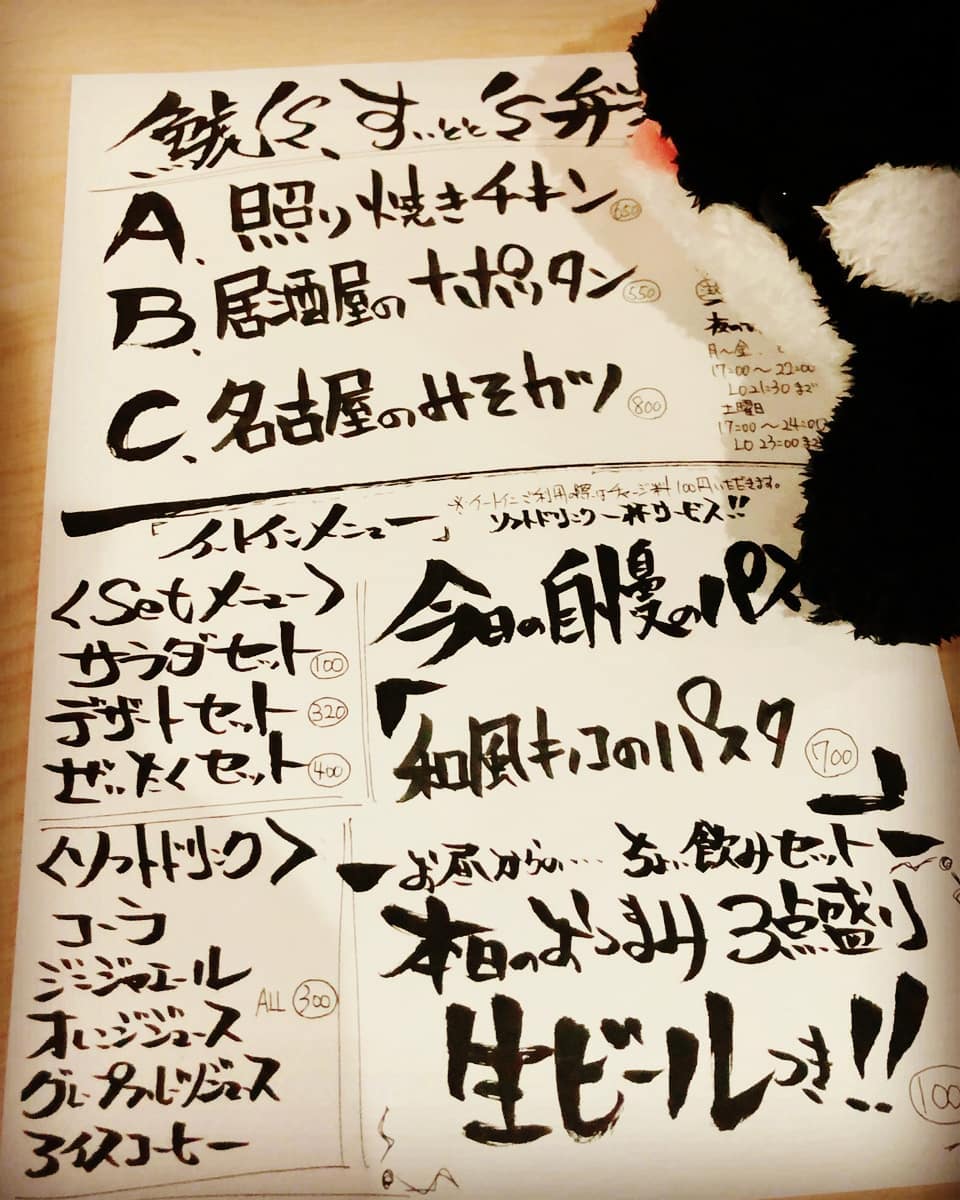 照り焼きチキン 650
A、
B、居酒屋のナポリタン 550
C、名古屋のみそカツ 800
月〜金
17:00〜22:00
LO 21:30まで
土曜日
17:00〜24:00
LO 23:00まで
※イートインご利用の際はチャージ料100円いただきます。
ソフトドリンク一杯サービス!!
「イートインメニュー」
〈Setメニュー〉
サラダセット 100
デザートセット 320
ぜいたくセット 400
〈ソフトドリンク〉
コーラ
ジンジャエール
オレンジジュース
グレープフルーツジュース
アイスコーヒー
ALL 300
今日の自慢のパス
「和風キノコのパスタ 700」
お昼からの…ちょい飲みセット
本日のおつまみ3点盛り
生ビールつき!!